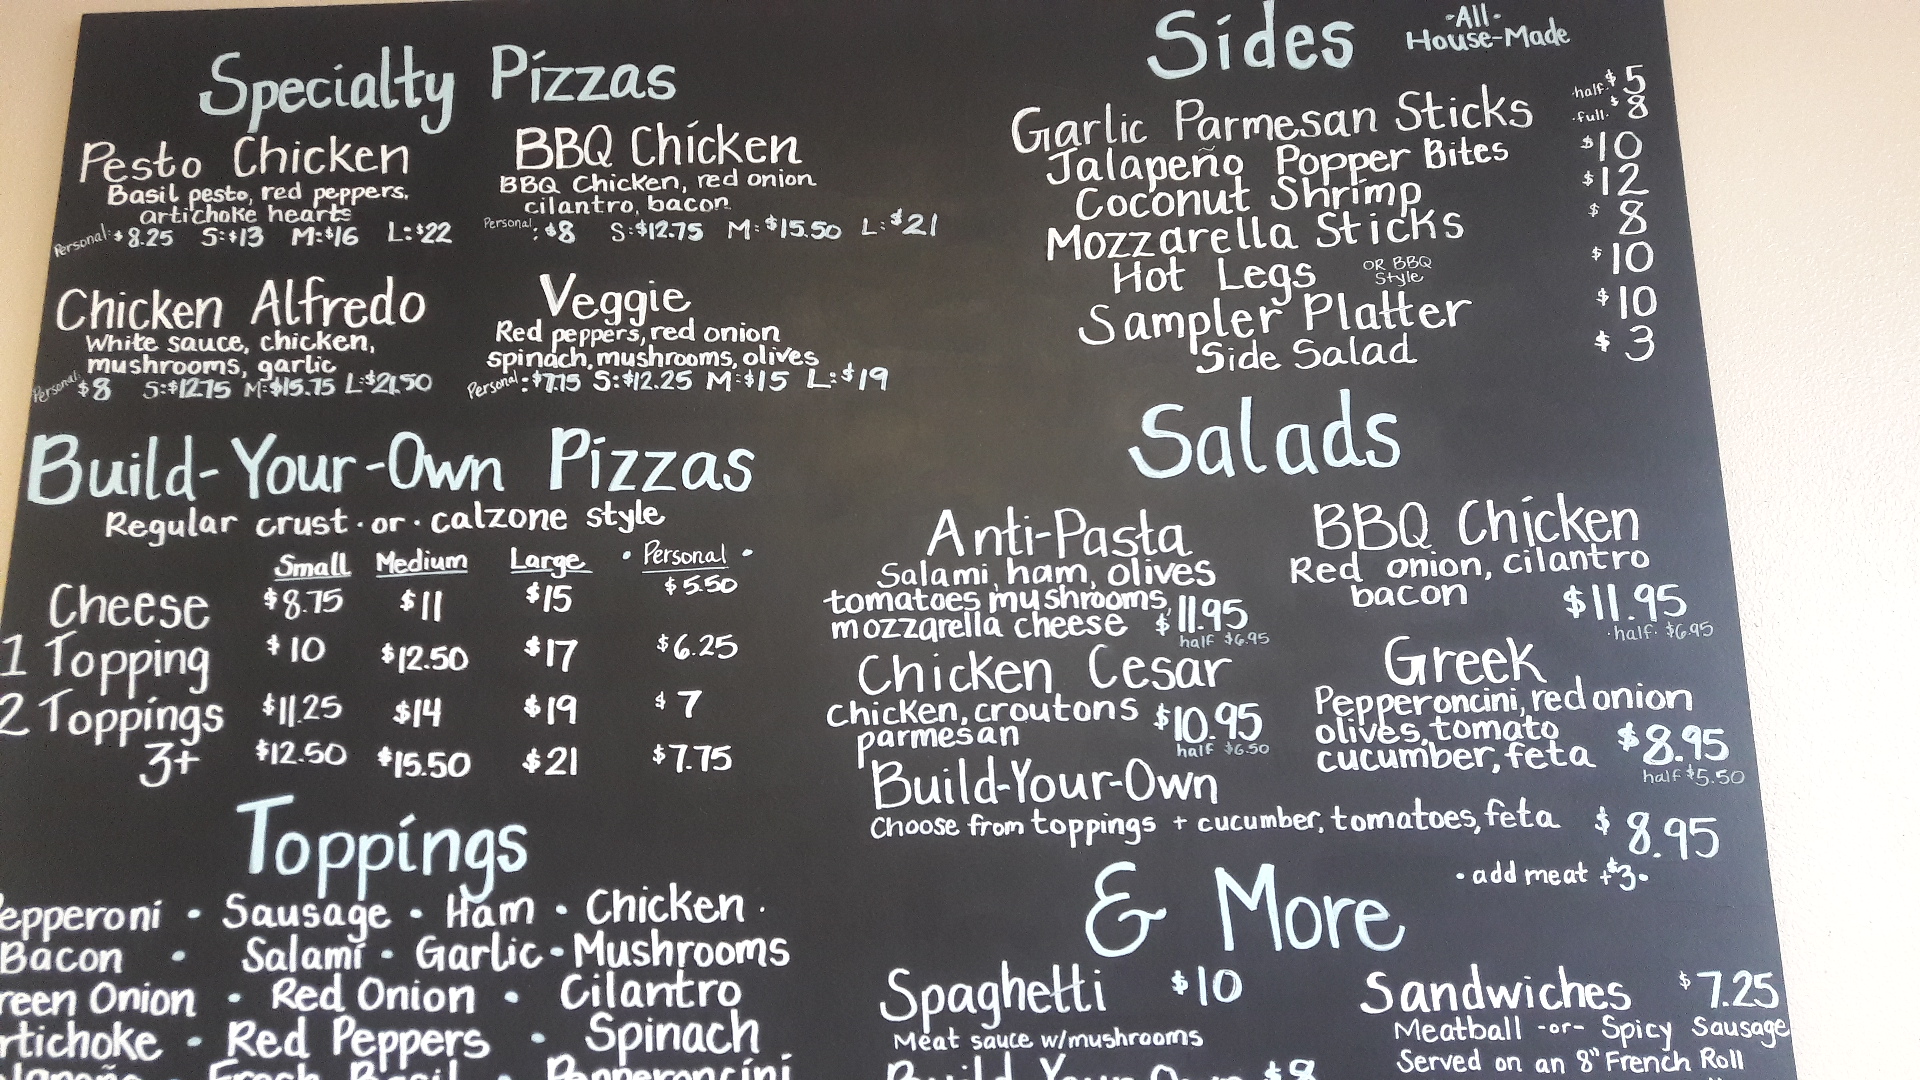 Specialty Pizzas
Pesto Chicken
Basil pesto, red peppers,
artichoke hearts
Personal: $8.25 S:$13 M:$16 L:$22
BBQ Chicken
BBQ Chicken, red onion
cilantro, bacon
Personal: $8 S:$12.75 M:$15.50 L:$21
Chicken Alfredo
White sauce, chicken,
mushrooms, garlic
Personal: $8 S:$12.75 M:$15.75 L:$21.50
Veggie
Red peppers, red onion
spinach, mushrooms, olives
Personal: $7.75 S:$12.25 M:$15 L:$19
Build-Your-Own Pizzas
Regular crust · or · calzone style
Small Medium Large · Personal ·
Cheese $8.75 $11 $15 $5.50
1 Topping $10 $12.50 $17 $6.25
2 Toppings $11.25 $14 $19 $7
3+ $12.50 $15.50 $21 $7.75
Toppings
epperoni · Sausage · Ham · Chicken ·
Bacon · Salami · Garlic · Mushrooms
reen Onion · Red Onion · Cilantro
rtichoke · Red Peppers · Spinach
Fresh Basil · Pepperoncini
Sides
-All-
House-Made
Garlic Parmesan Sticks ·half· $5
·full· $8
Jalapeño Popper Bites $10
Coconut Shrimp $12
Mozzarella Sticks $8
Hot Legs OR BBQ Style $10
Sampler Platter $10
Side Salad $3
Salads
Anti-Pasta
Salami, ham, olives
tomatoes mushrooms,
mozzarella cheese $11.95
half $6.95
BBQ Chicken
Red onion, cilantro
bacon $11.95
·half· $6.95
Chicken Cesar
chicken, croutons
parmesan $10.95
half $6.50
Greek
Pepperoncini, red onion
olives, tomato
cucumber, feta $8.95
half $5.50
Build-Your-Own
Choose from toppings + cucumber, tomatoes, feta $8.95
· add meat +$3 ·
& More
Spaghetti $10
Meat sauce w/mushrooms
Build Your Own $8
Sandwiches $7.25
Meatball -or- Spicy Sausage
Served on an 8" French Roll